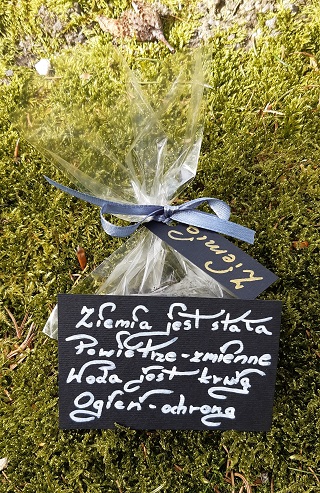 Ziemia
Ziemia jest stała
Powietrze - zmienne
Woda jest krwią
Ogień - ochroną